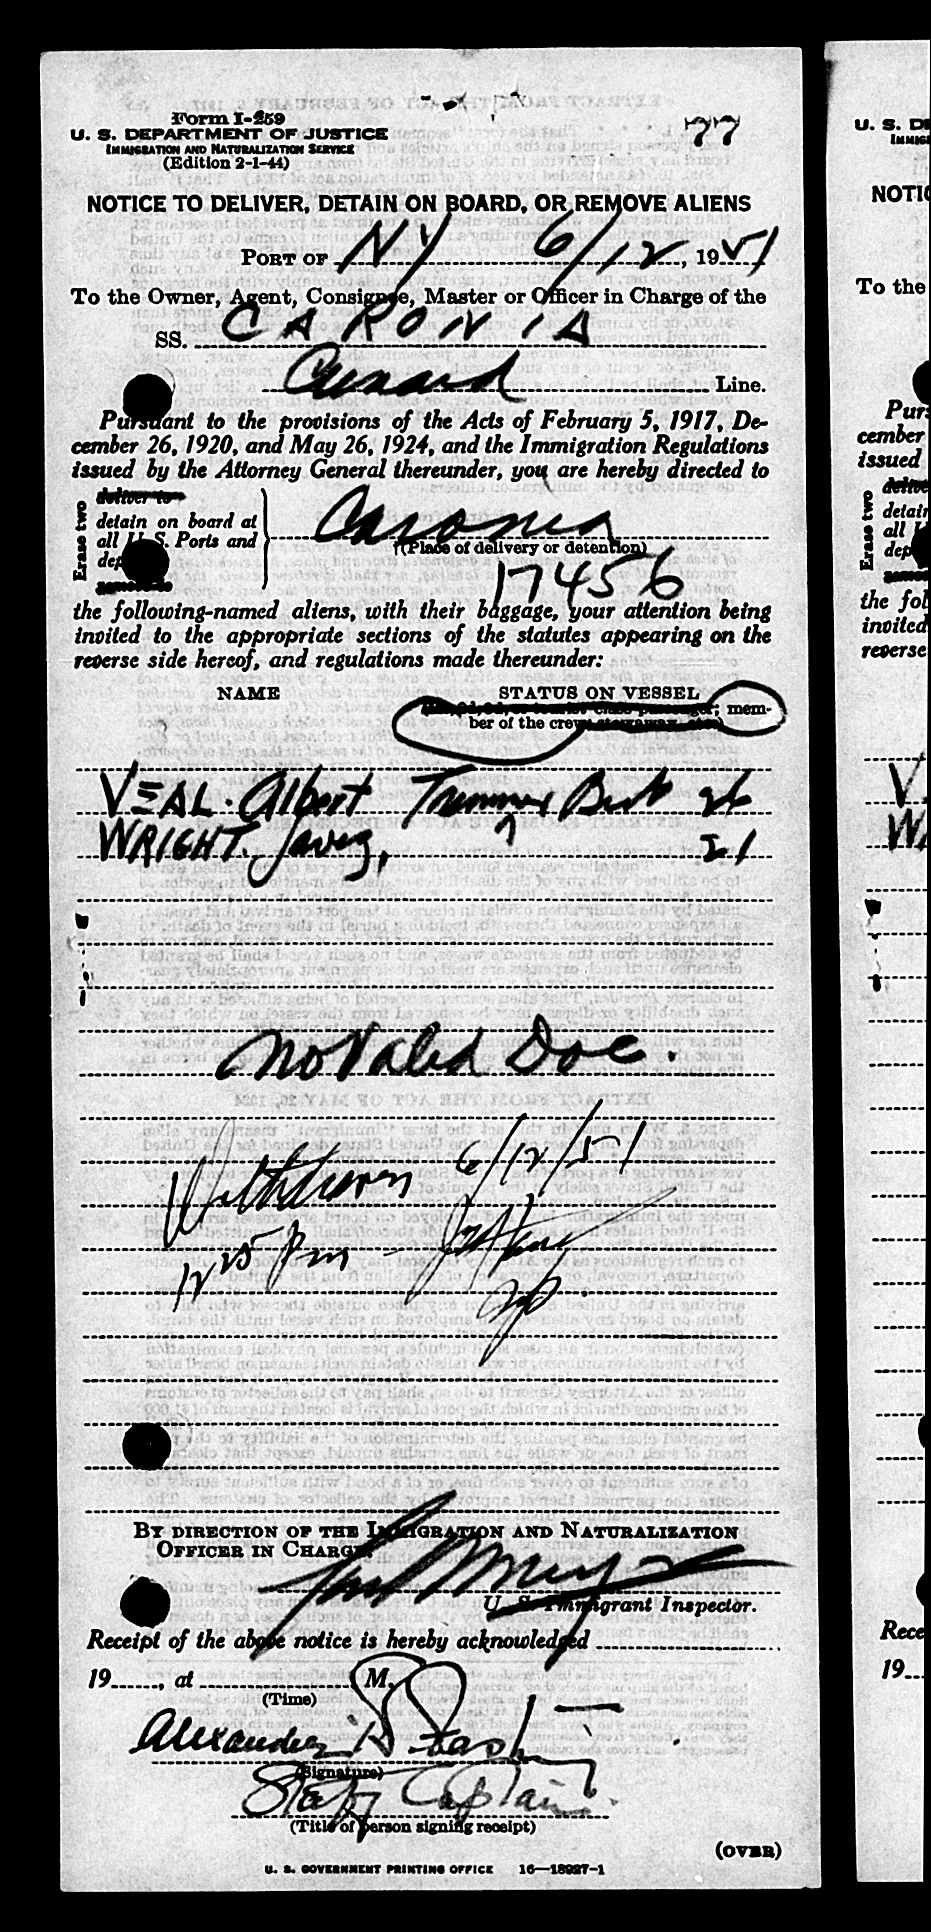 Form I-259
U. S. DEPARTMENT OF JUSTICE
IMMIGRATION AND NATURALIZATION SERVICE
(Edition 2-1-44)
77
NOTICE TO DELIVER, DETAIN ON BOARD, OR REMOVE ALIENS
PORT OF NY 6/12, 1951
To the Owner, Agent, Consignee, Master or Officer in Charge of the
SS. CARONIA
Cunard Line.
Pursuant to the provisions of the Acts of February 5, 1917, De-
cember 26, 1920, and May 26, 1924, and the Immigration Regulations
issued by the Attorney General thereunder, you are hereby directed to
Erase two
deliver to
detain on board at
all U. S. Ports and
Caronia
(Place of delivery or detention)
17456
the following-named aliens, with their baggage, your attention being
invited to the appropriate sections of the statutes appearing on the
reverse side hereof, and regulations made thereunder:
NAME STATUS ON VESSEL
mem-
ber of the crew
VEAL. Albert Trimmer Brit 26
WRIGHT. 21
No Valid Doc.
Withdrawn 6/12/51
12 25 pm
BY DIRECTION OF THE IMMIGRATION AND NATURALIZATION
OFFICER IN CHARGE.
U. S. Immigrant Inspector.
Receipt of the above notice is hereby acknowledged
19 , at M.
(Time)
(Signature)
Staff Captain.
(Title of person signing receipt)
(OVER)
U. S. GOVERNMENT PRINTING OFFICE 16—18927-1
U. S. DE
NOTIC
To the
Purs
cember
issued
Erase two
detain
all U
dep
the fol
invited
reverse
Rece
19